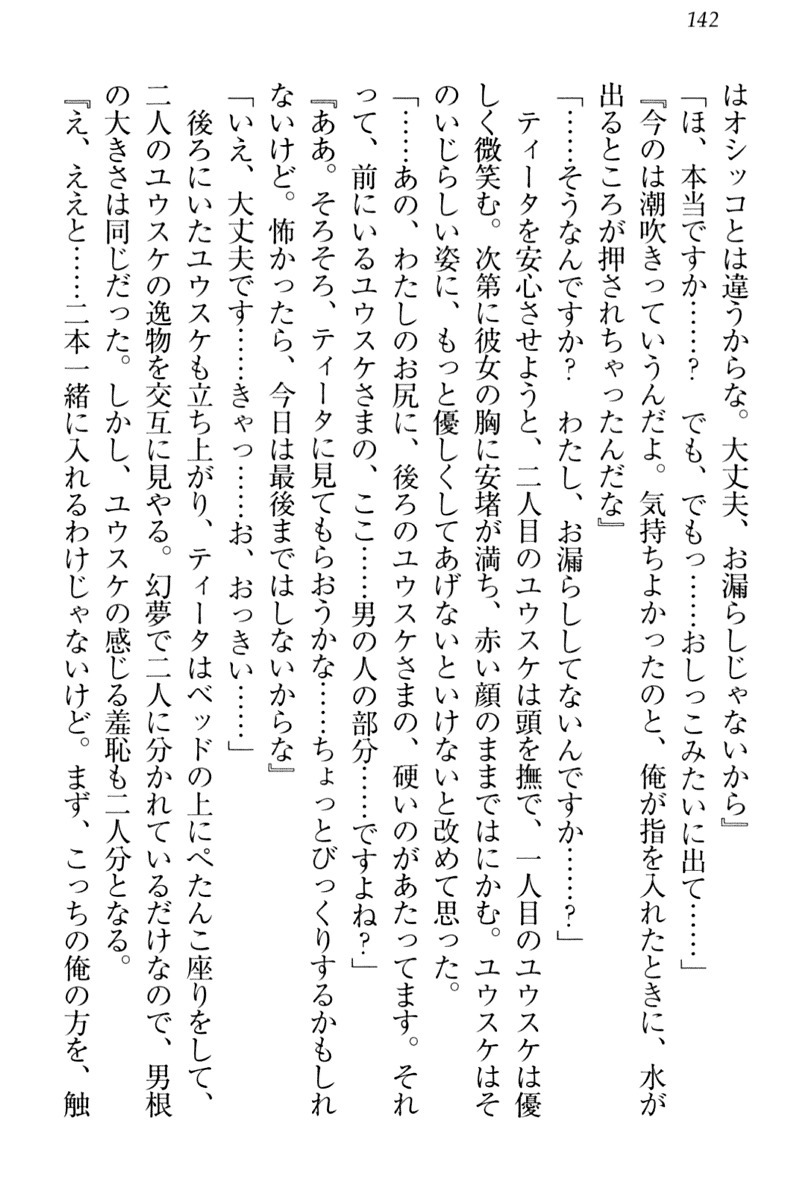 142
はオシッコとは違うからな。大丈夫、お漏らしじゃないから』
「ほ、本当ですか……？　でも、でもっ……おしっこみたいに出て……」
『今のは潮吹きっていうんだよ。気持ちよかったのと、俺が指を入れたときに、水が
出るところが押されちゃったんだな』
「……そうなんですか？　わたし、お漏らししてないんですか……？」
　ティータを安心させようと、二人目のユウスケは頭を撫で、一人目のユウスケは優
しく微笑む。次第に彼女の胸に安堵が満ち、赤い顔のままではにかむ。ユウスケはそ
のいじらしい姿に、もっと優しくしてあげないといけないと改めて思った。
「……あの、わたしのお尻に、後ろのユウスケさまの、硬いのがあたってます。それ
って、前にいるユウスケさまの、ここ……男の人の部分……ですよね？」
『ああ。そろそろ、ティータに見てもらおうかな……ちょっとびっくりするかもしれ
ないけど。怖かったら、今日は最後まではしないからな』
「いえ、大丈夫です……きゃっ……お、おっきい……」
　後ろにいたユウスケも立ち上がり、ティータはベッドの上にぺたんこ座りをして、
二人のユウスケの逸物を交互に見やる。幻夢で二人に分かれているだけなので、男根
の大きさは同じだった。しかし、ユウスケの感じる羞恥も二人分となる。
『え、ええと……二本一緒に入れるわけじゃないけど。まず、こっちの俺の方を、触